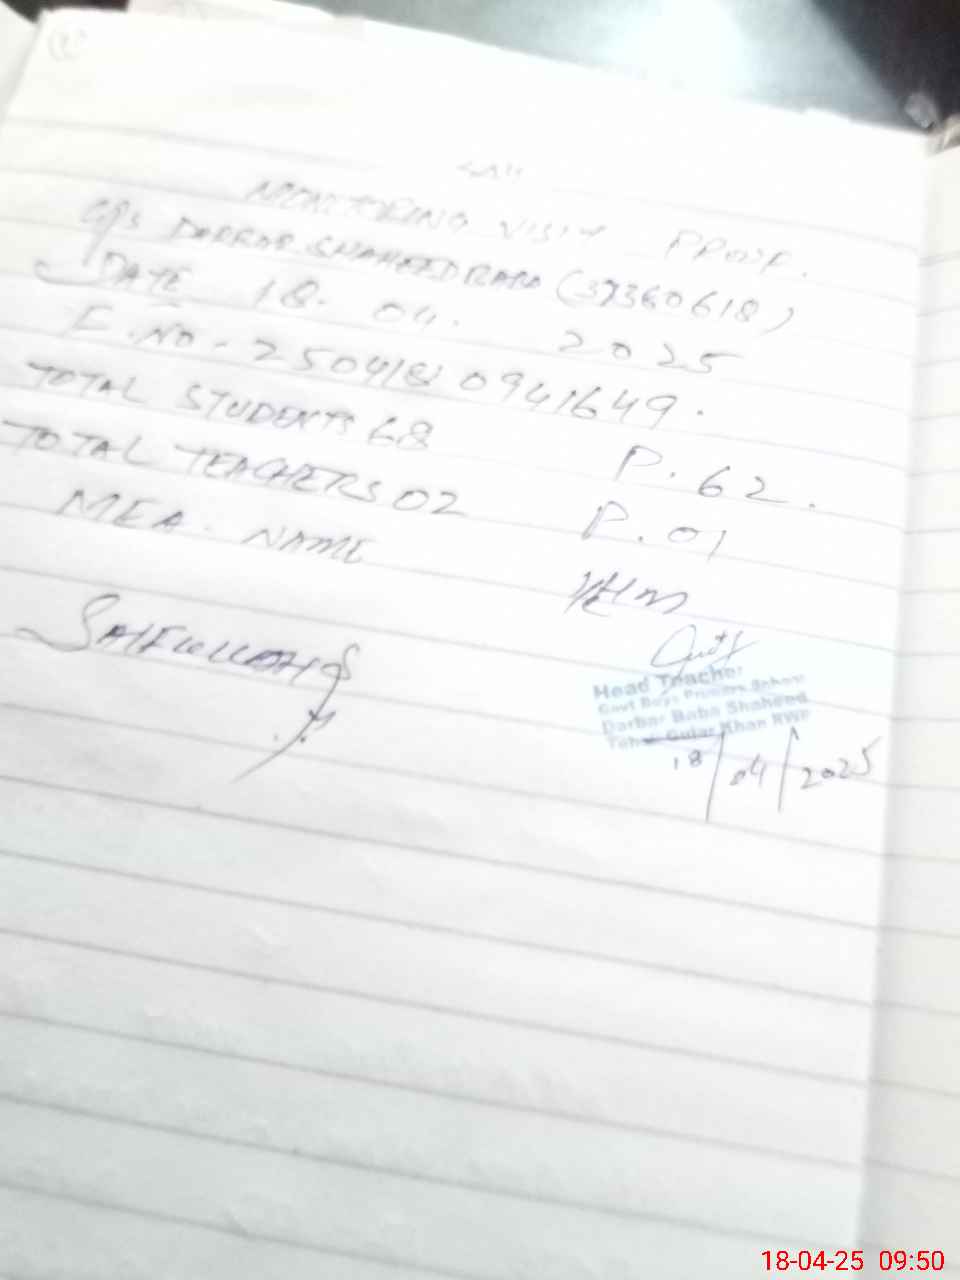 MONITORING VISIT PROOF.
GPS DARBAR SHAHEED BABA (37360618)
DATE 18. 04. 2025
E.NO - 250418 0941649.
TOTAL STUDENTS 68 P. 62.
TOTAL TEACHERS 02 P. 01
MEA. NAME
SAIFULLAH
Head Teacher
Govt Boys Primary School
Darbar Baba Shaheed
Tehsil Gujar Khan RWP
18/04/2025
18-04-25 09:50